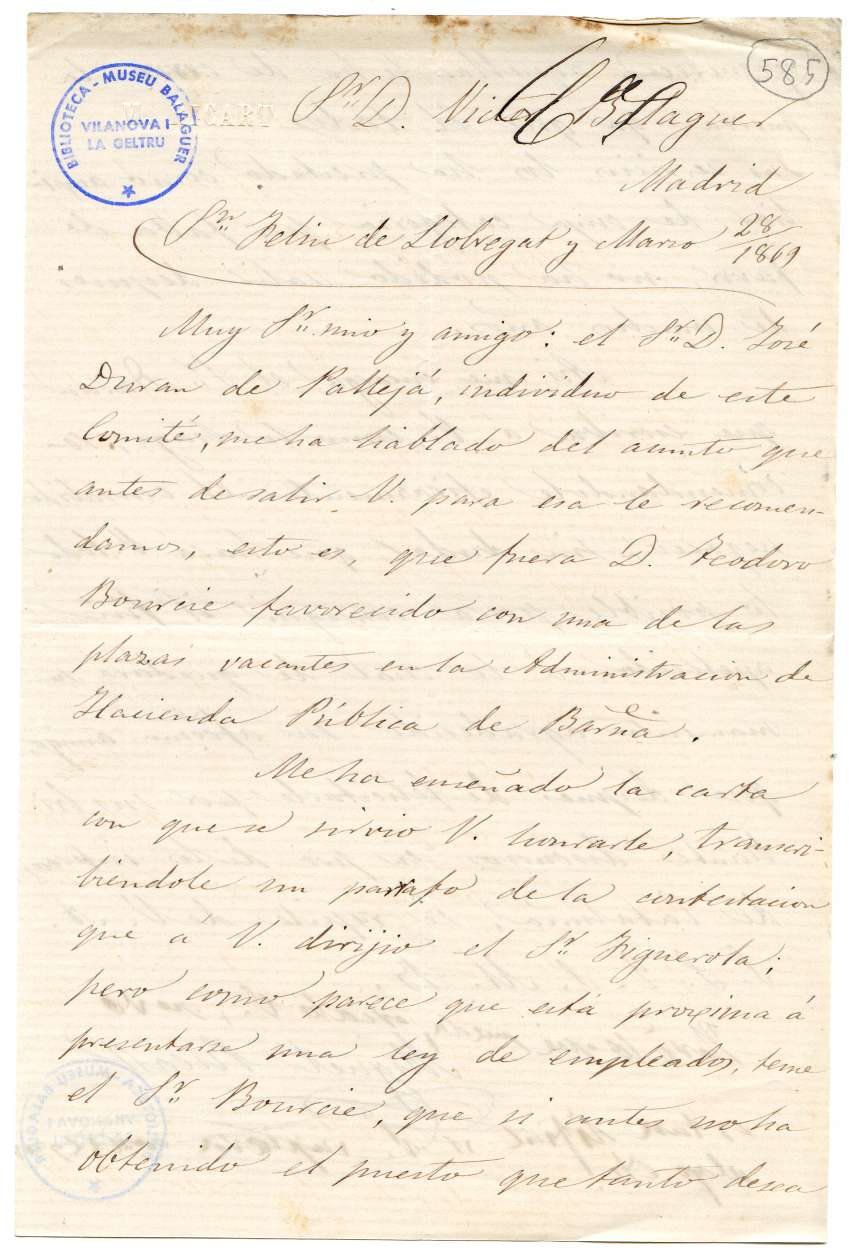 585
BIBLIOTECA - MUSEU BALAGUER
VILANOVA I
LA GELTRU
Sr. D. Victor Balaguer
Madrid
Sn. Feliu de Llobregat y Marzo 28/1869
Muy Sr. mio y amigo: el Sr. D. José
Duran de Pallejá, individuo de este
Comité, me ha hablado del asunto que
antes de salir V. para esa le recomen-
damos, esto es, que fuera D. Teodoro
Bourcie favorecido con una de las
plazas vacantes en la Administracion de
Hacienda Pública de Barña.
Me ha enseñado la carta
con que se sirvio V. honrarle, transcri-
biéndole un parrafo de la contestacion
que á V. dirijio el Sr. Figuerola;
pero como parece que está proxima á
presentarse una ley de empleados, teme
el Sr. Bourcie, que si antes no ha
obtenido el puesto que tanto desea